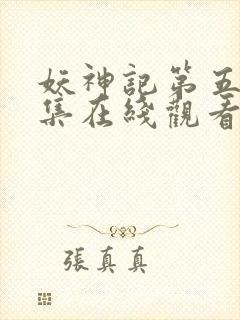 妖神記第五
集在綫觀看
張真真